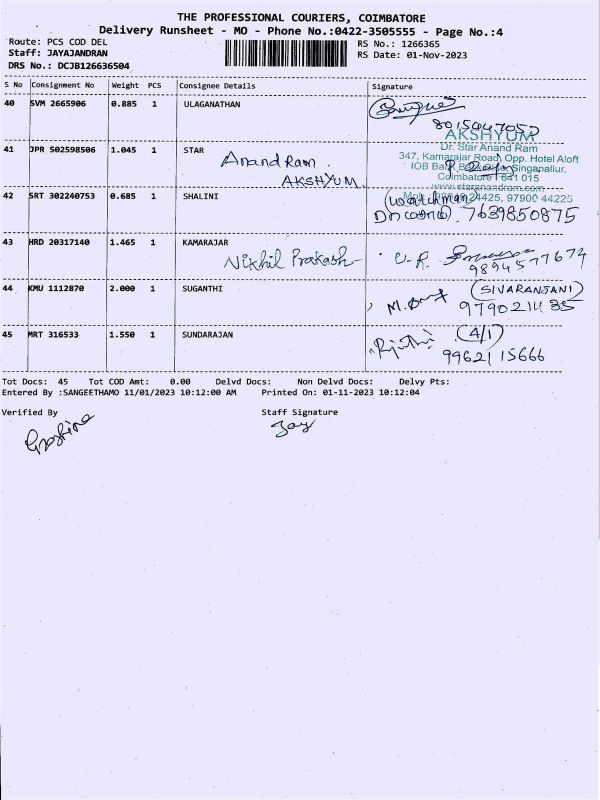 THE PROFESSIONAL COURIERS, COIMBATORE
Delivery Runsheet - MO - Phone No.:0422-3505555 - Page No.:4
Route: PCS COD DEL
Staff: JAYAJANDRAN
DRS No.: DCJB126636504
RS No.: 1266365
RS Date: 01-Nov-2023
S No Consignment No Weight PCS Consignee Details Signature
40 SVM 2665906 0.885 1 ULAGANATHAN
41 JPR 502598506 1.045 1 STAR
Anand Ram.
AKSHYUM
AKSHYUM
Dr. Star Anand Ram
347, Kamarajar Road, Opp. Hotel Aloft
IOB Singanallur,
Coimbatore 641 015
www.staranandram.com
24425, 97900 44225
42 SRT 302240753 0.685 1 SHALINI
(watchman)
7639850875
43 HRD 20317140 1.465 1 KAMARAJAR
Nikhil Prakash
9894577674
44 KMU 1112870 2.000 1 SUGANTHI
(SIVARANJANI)
45 MRT 316533 1.550 1 SUNDARAJAN
(4/1)
9962115666
Tot Docs: 45 Tot COD Amt: 0.00 Delvd Docs: Non Delvd Docs: Delvy Pts:
Entered By :SANGEETHAMO 11/01/2023 10:12:00 AM Printed On: 01-11-2023 10:12:04
Verified By Staff Signature
Jay